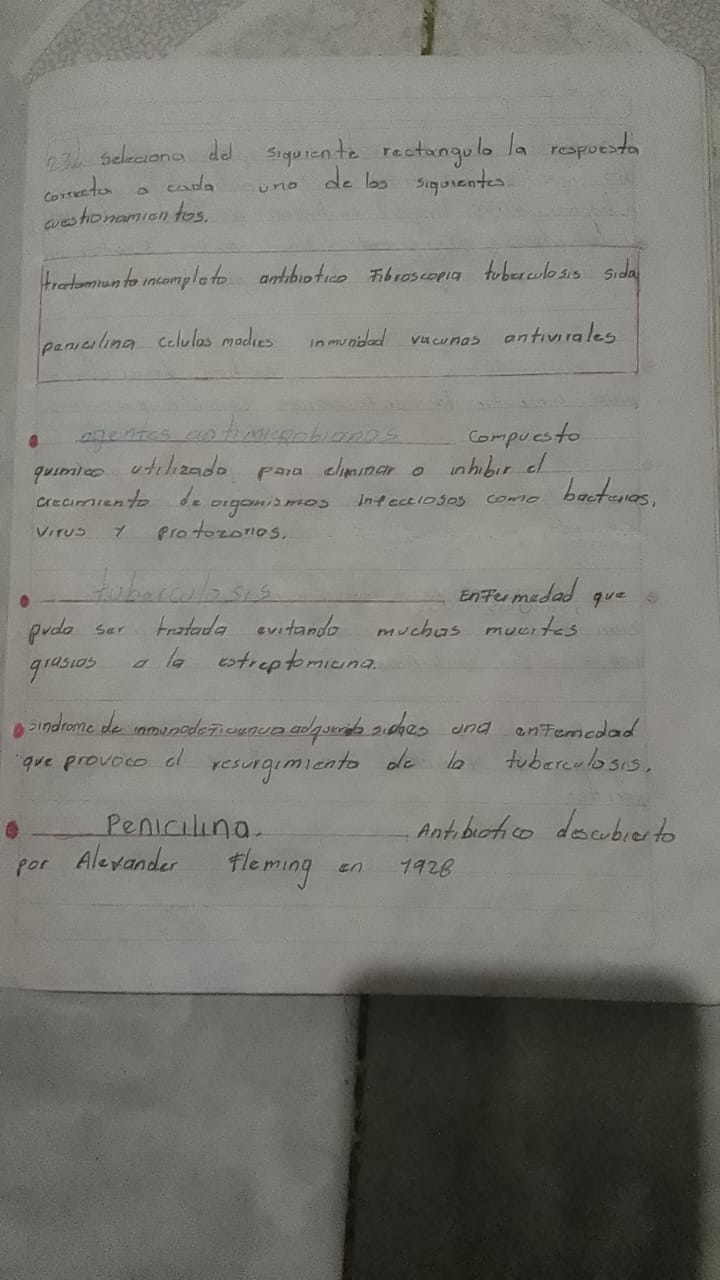 23. Seleciona del siguiente rectangulo la respuesta
correcta a cada uno de los siguientes
cuestionamientos.
tratamiento incompleto antibiotico Fibroscopia tuberculosis sida
penicilina celulas madres inmunidad vacunas antivirales
agentes antimicrobianos compuesto
quimico utilizado para eliminar o inhibir el
crecimiento de organismos infecciosos como bacterias,
virus y protozorios.
tuberculosis Enfermedad que
pudo ser tratada evitando muchas muertes
grasias a la estreptomicina.
sindrome de inmunodeficiencia adquirida una enfermedad
que provoco el resurgimiento de la tuberculosis.
Penicilina. Antibiotico descubierto
por Alexander Fleming en 1928